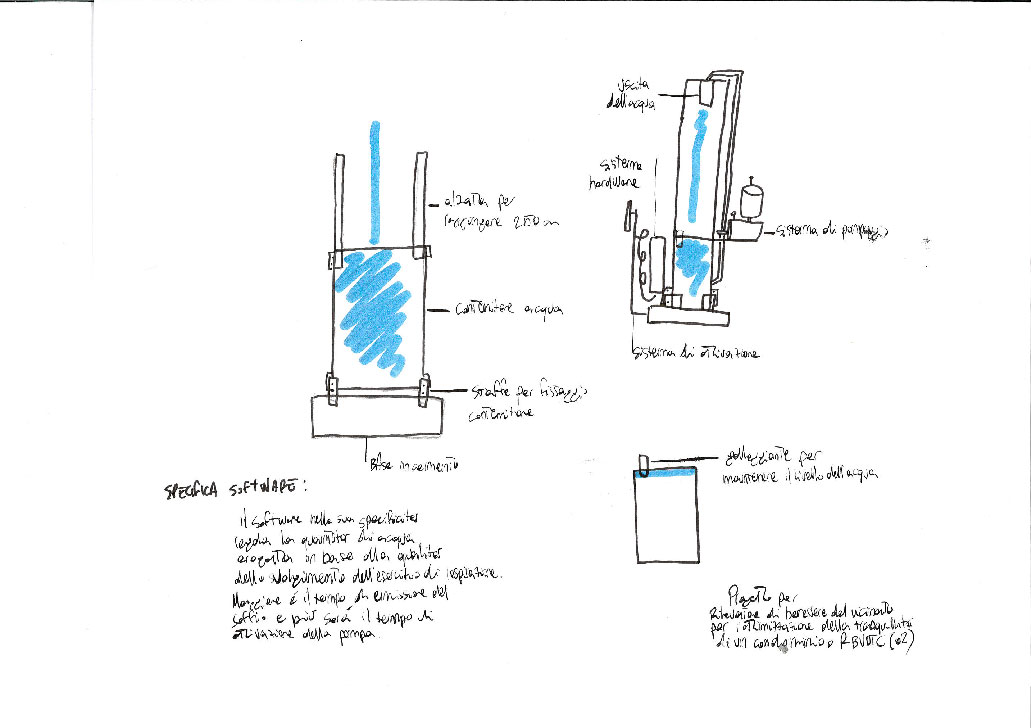 uscita
dell'acqua
sistema
hardware
alzata per
raggiungere 250 cm
sistema di pompaggio
contenitore acqua
sistema di attivazione
staffe per fissaggio
contenitore
Base in cemento
galleggiante per
mantenere il livello dell'acqua
SPECIFICA SOFTWARE:
il software nella sua specificità
regola la quantità di acqua
erogata in base alla qualità
dello svolgimento dell'esercizio di respirazione.
Maggiore è il tempo di emissione del
soffio e più sarà il tempo di
attivazione della pompa.
Progetto per
Rilevazione di benessere del vicinato
per l'ottimizzazione della tranquillità
di un condominio RBVOTC (02)